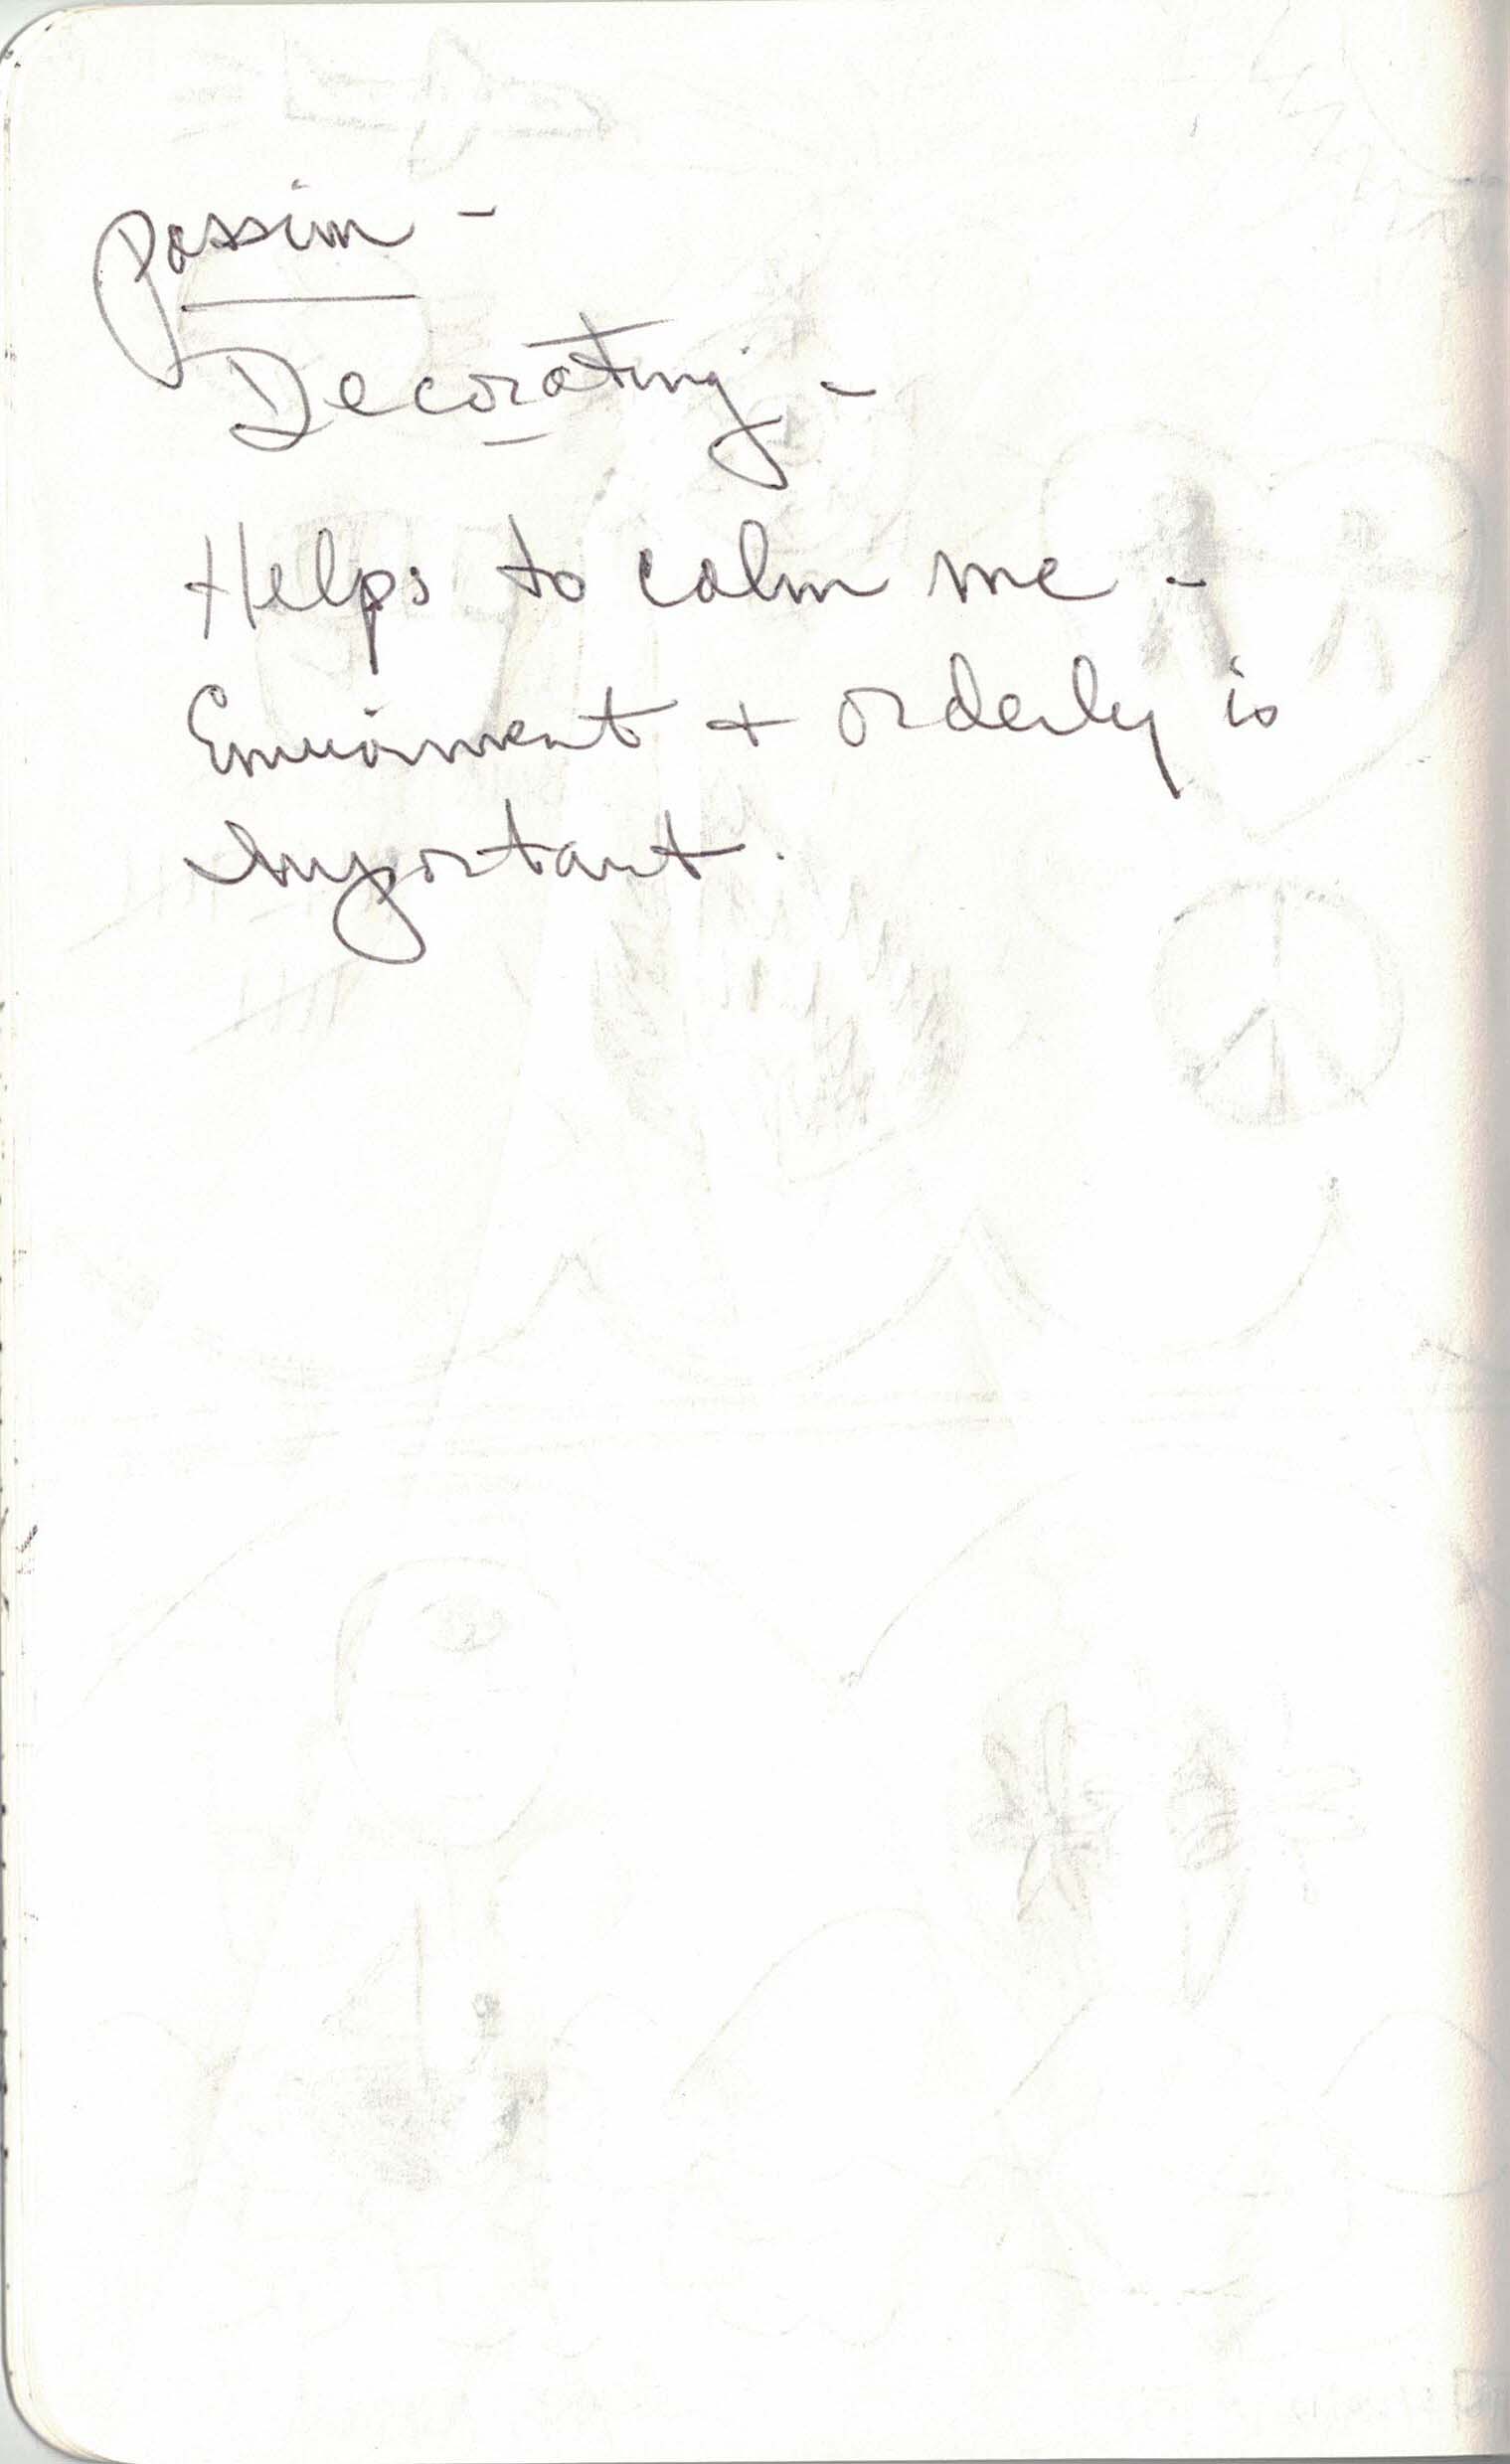 Passion -
Decorating -
Helps to calm me -
Enviorment + orderly is
Important.